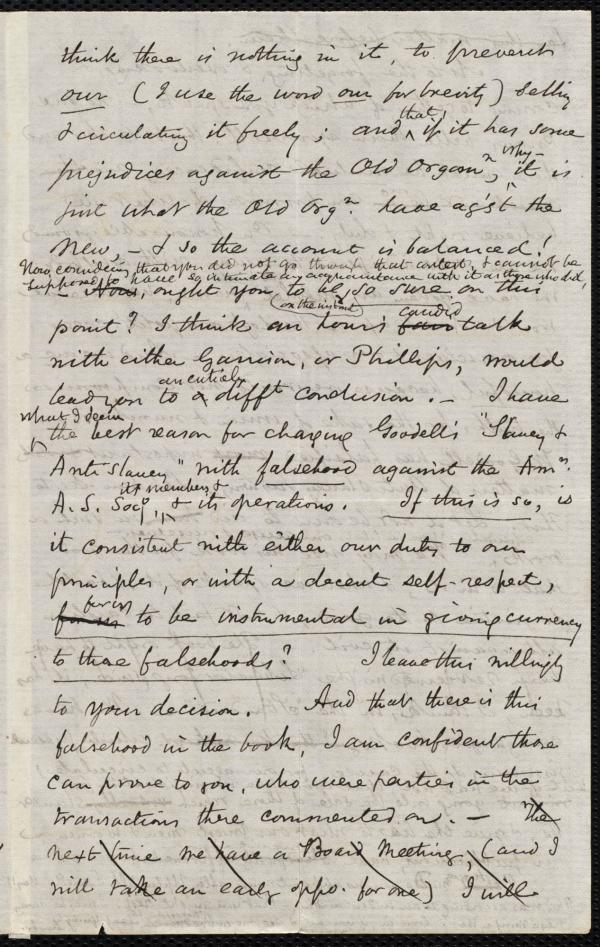 think there is nothing in it, to prevent
our (I use the word our for brevity) selling
& circulating it freely; and that, if it has some
prejudices against the Old Organn, why– it is
just what the Old Orgn. have agst the
New, – & so the account is balanced!
Now, considering that you did not go through that contest, & cannot be
supposed to have so intimate an acquaintance with it as those who did,
– Now, ought you, to be, so sure on this
(on the instant)
point? I think an hour's fair candid talk
with either Garrison, or Phillips, would
lead you to a an entirely difft conclusion. – I have
what I deem
the best reason for charging Goodell's "Slavery &
Anti Slavery" with falsehood against the Amn.
A. S. Socy, its members, & & its operations. If this is so, is
it consistent with either our duty to our
principles, or with a decent self-respect,
for us for us to be instrumental in giving currency
to these falsehoods? I leave this willingly
to your decision. And that there is this
falsehood in the book, I am confident those
can prove to you, who were parties in the
transactions there commented on. – The
next time we have a Board Meeting, (and I
will take an early oppo. for one) I will